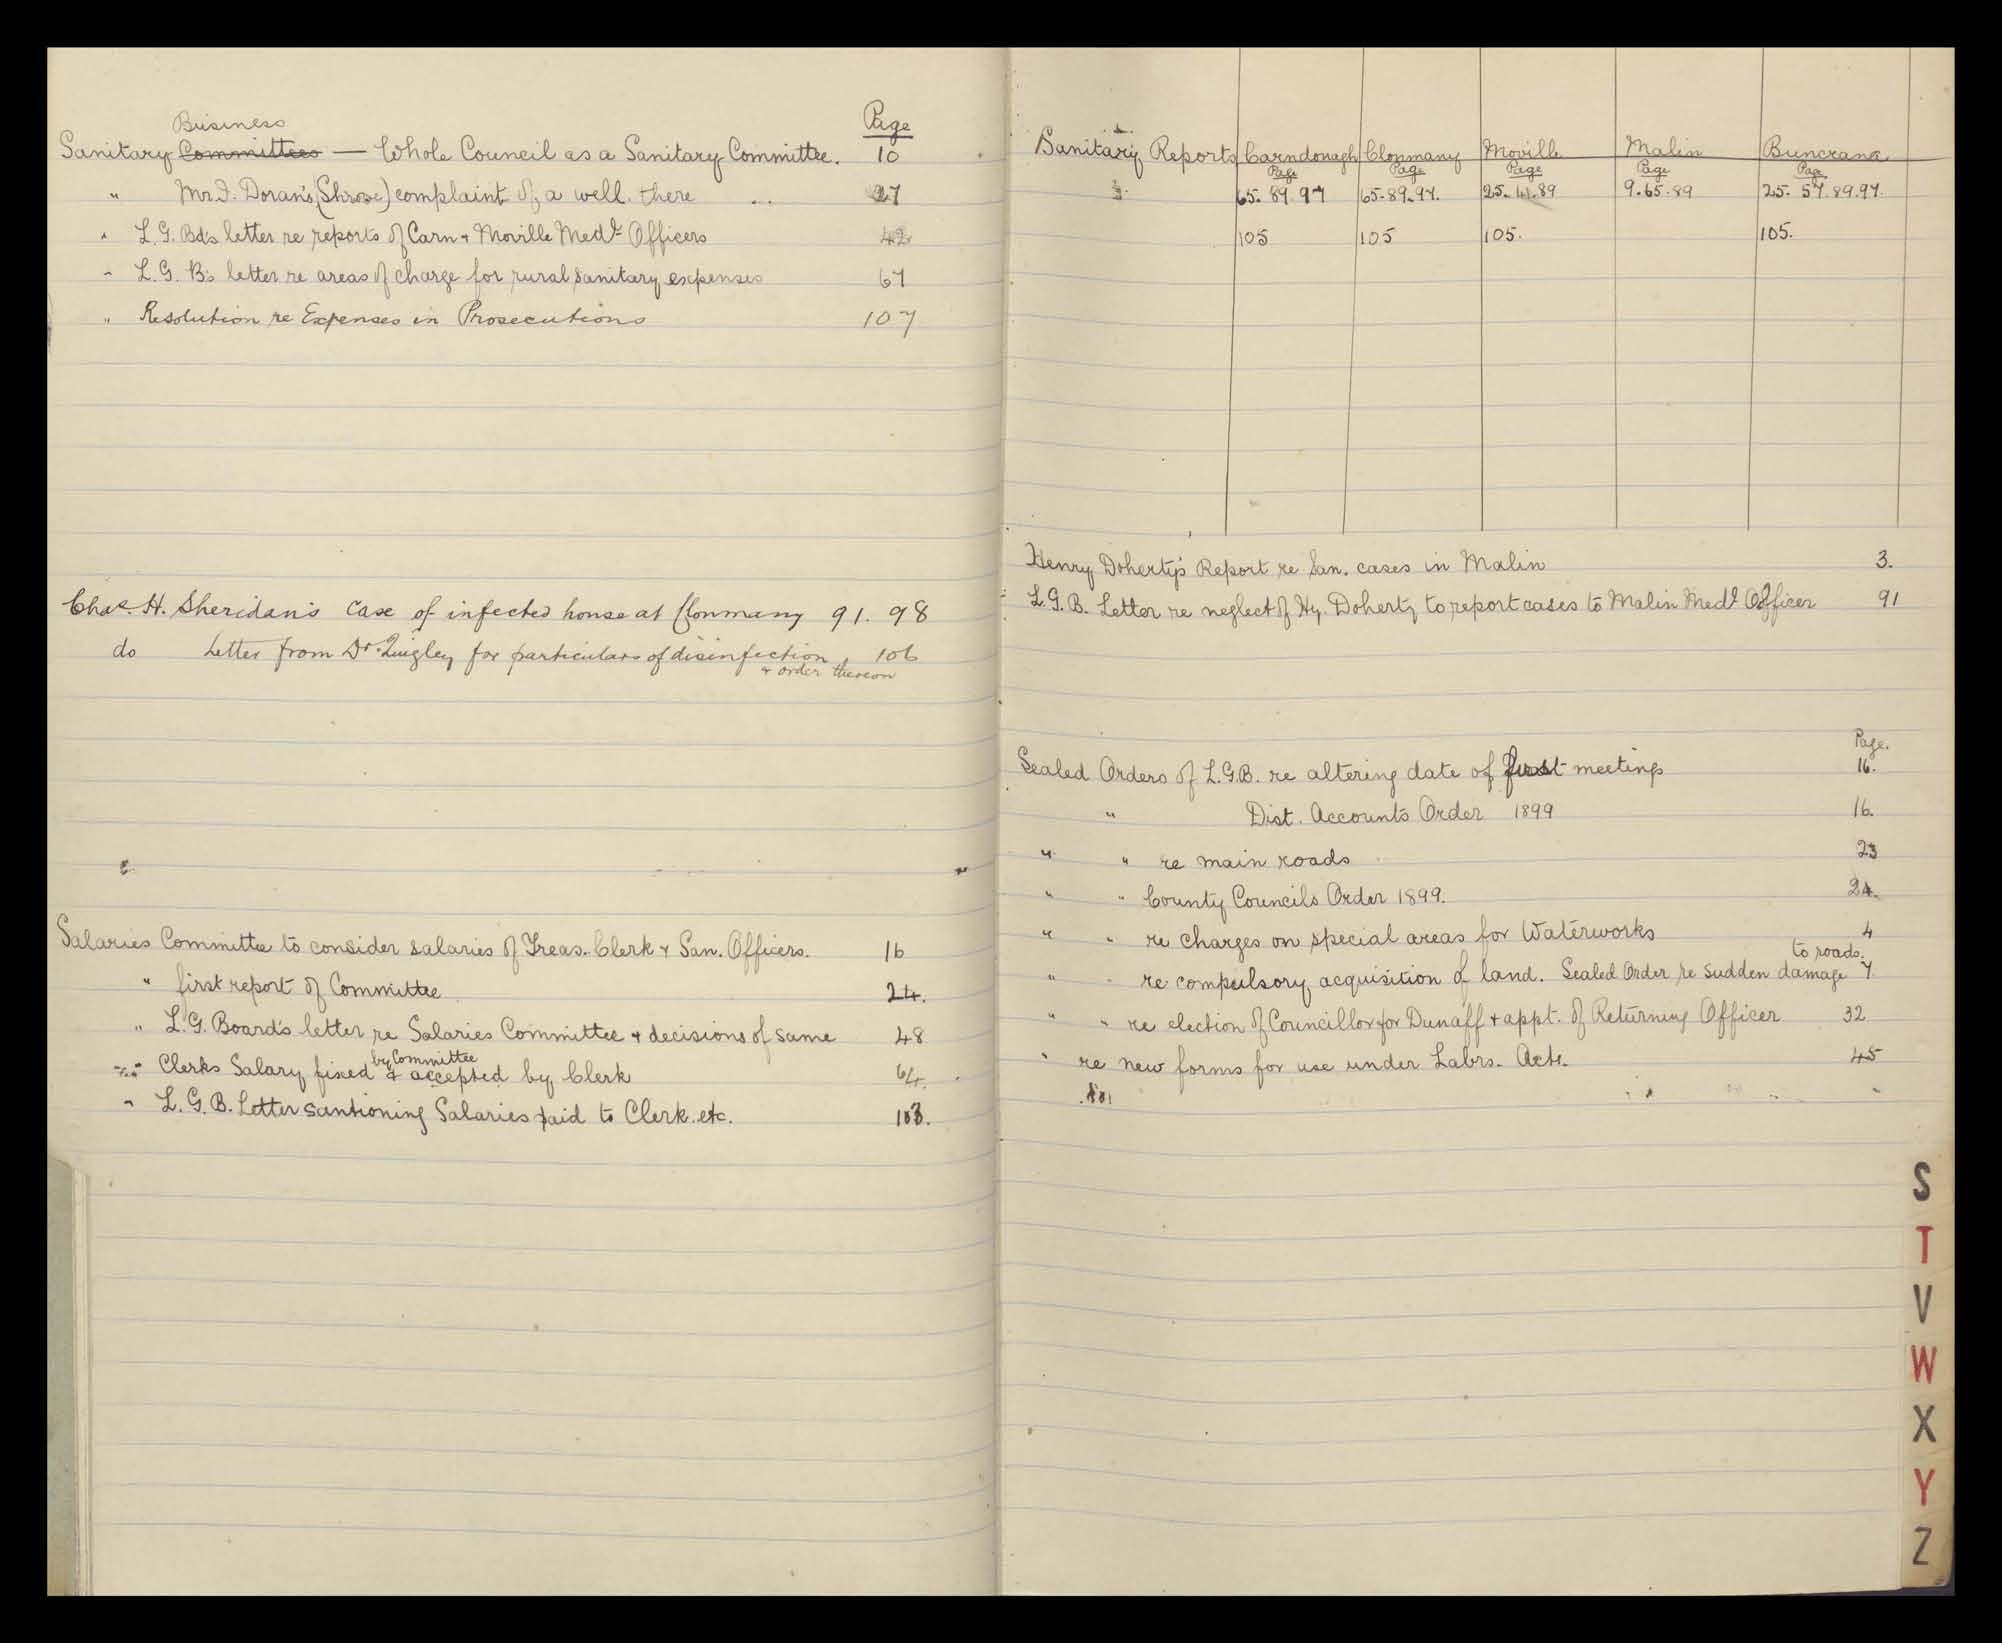 Business
Page
Sanitary Committees — Whole Council as a Sanitary Committee. 10
" Mr. J. Doran's (Shrove) complaint of a well there ... 27
" L.G. Bd's letter re reports of Carn + Moville Medl. Officers 42
" L.G. B's letter re areas of charge for rural sanitary expenses 67
" Resolution re Expenses in Prosecutions 107
Chas. H. Sheridan's case of infected house at Clonmany 91. 98
do Letter from Dr. Quigley for particulars of disinfection 106
+ order thereon
Salaries Committee to consider salaries of Treas. Clerk + San. Officers. 16
" first report of Committee 24.
" L.G. Board's letter re Salaries Committee + decisions of same 48
by Committee
" Clerks Salary fixed & accepted by Clerk 64.
" L.G.B. Letter santioning Salaries paid to Clerk. etc. 103.
Sanitary Reports Carndonagh Clonmany Moville Malin Buncrana
Page Page Page Page Page
65. 89. 97 65. 89. 97. 25. 41. 89 9. 65. 89 25. 57. 89. 97.
105 105 105. 105.
Henry Doherty's Report re San. cases in Malin 3.
L.G.B. Letter re neglect of Hy. Doherty to report cases to Malin Medl. Officer 91
Page.
Sealed Orders of L.G.B. re altering date of first meetings 16.
" Dist. Accounts Order 1899 16.
" " re main roads 23
" " County Councils Order 1899. 24.
" " re charges on special areas for Waterworks 4
to roads.
" " re compulsory acquisition of land. Sealed Order re sudden damage 7
" " re election of Councillor for Dunaff + appt. of Returning Officer 32
" re new forms for use under Labrs. Acts. 45
S
T
V
W
X
Y
Z